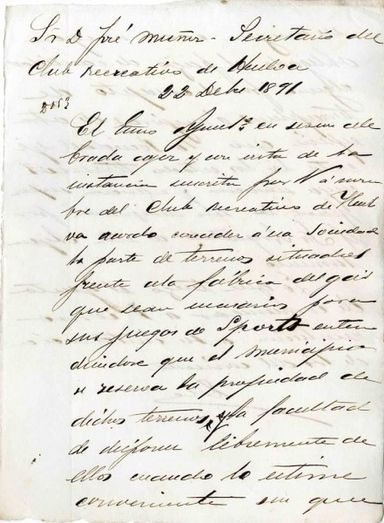 Sr D José Muñiz - Secretario del
Club Recreativo de Huelva
22 Dbre 1891
El Exmo Ayunto en sesion cele
brada ayer y en vista de la
instancia suscrita por V á nom
bre del Club Recreativo de Huel
va acordo conceder á esa Sociedad
la parte de terrenos situados
frente a la fábrica del gas
que sean necesarios para
sus juegos de Sports enten
diendose que el Municipio
se reserva la propiedad de
dichos terrenos, y la facultad
de disponer libremente de
ellos cuando lo estime
conveniente sin que